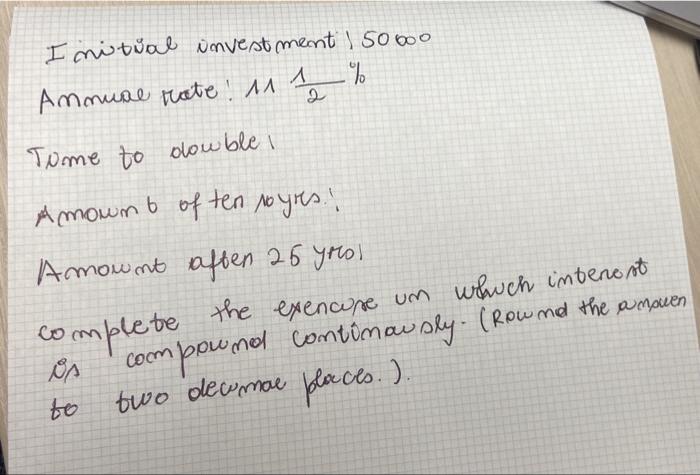 Initial investment: 50 000
Annual rate: 11 1/2 %
Time to double:
Amount of ten 10 yrs.:
Amount after 25 yrs:
complete the exercise in which interest
is compound continuously. (Round the answer
to two decimal places.).